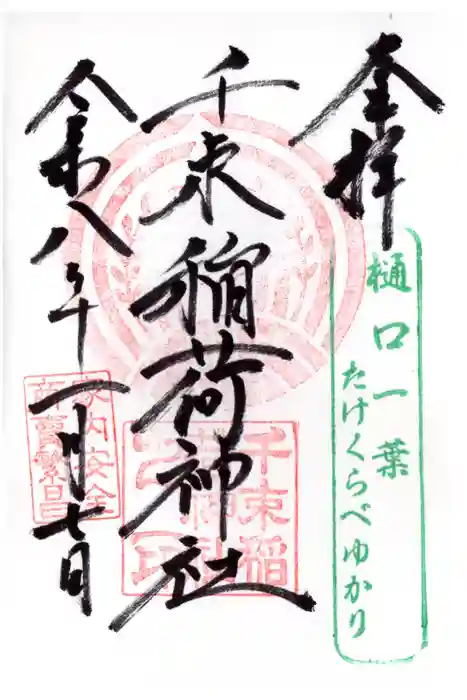 奉拝
樋口一葉
たけくらべゆかり
千束稲荷神社
千束稲
家内安全
商売繁昌
令和八年一月七日